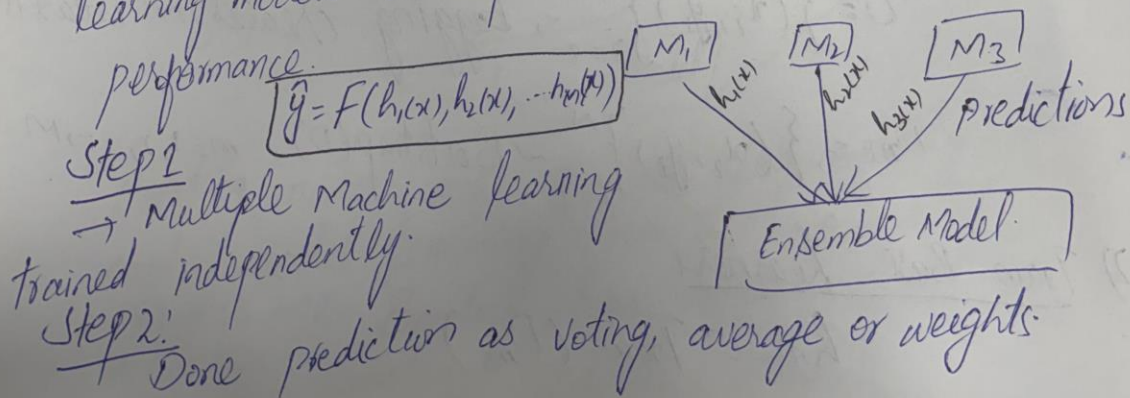 learning
performance.
ŷ = F(h₁(x), h₂(x), ... hₘ(x))
M₁ M₂ M₃
h₁(x) h₂(x) h₃(x) Predictions
Step 1
→ Multiple Machine learning
trained independently.
Ensemble Model.
Step 2:
Done prediction as voting, average or weights.